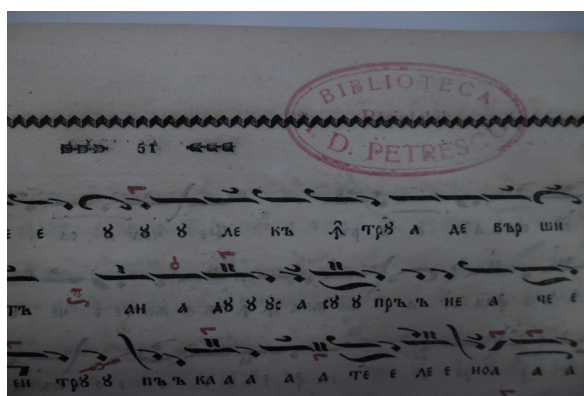 BIBLIOTECA
I. D. PETRESCU
51
Е Е Ꙋ Ꙋ Ꙋ ЛЕ КЪ Ꙟ ТРꙊ А ДЕ ВЪР ШИ
ТЪ АН А ДꙊ Ꙋ ꙊС А СꙊ Ꙋ ПРЪ Ъ НЕ А ЧЕ Е
ЕН ТРꙊ Ꙋ ПЪ Ъ КА А А А А ТЕ Е ЛЕ Е НОА А А